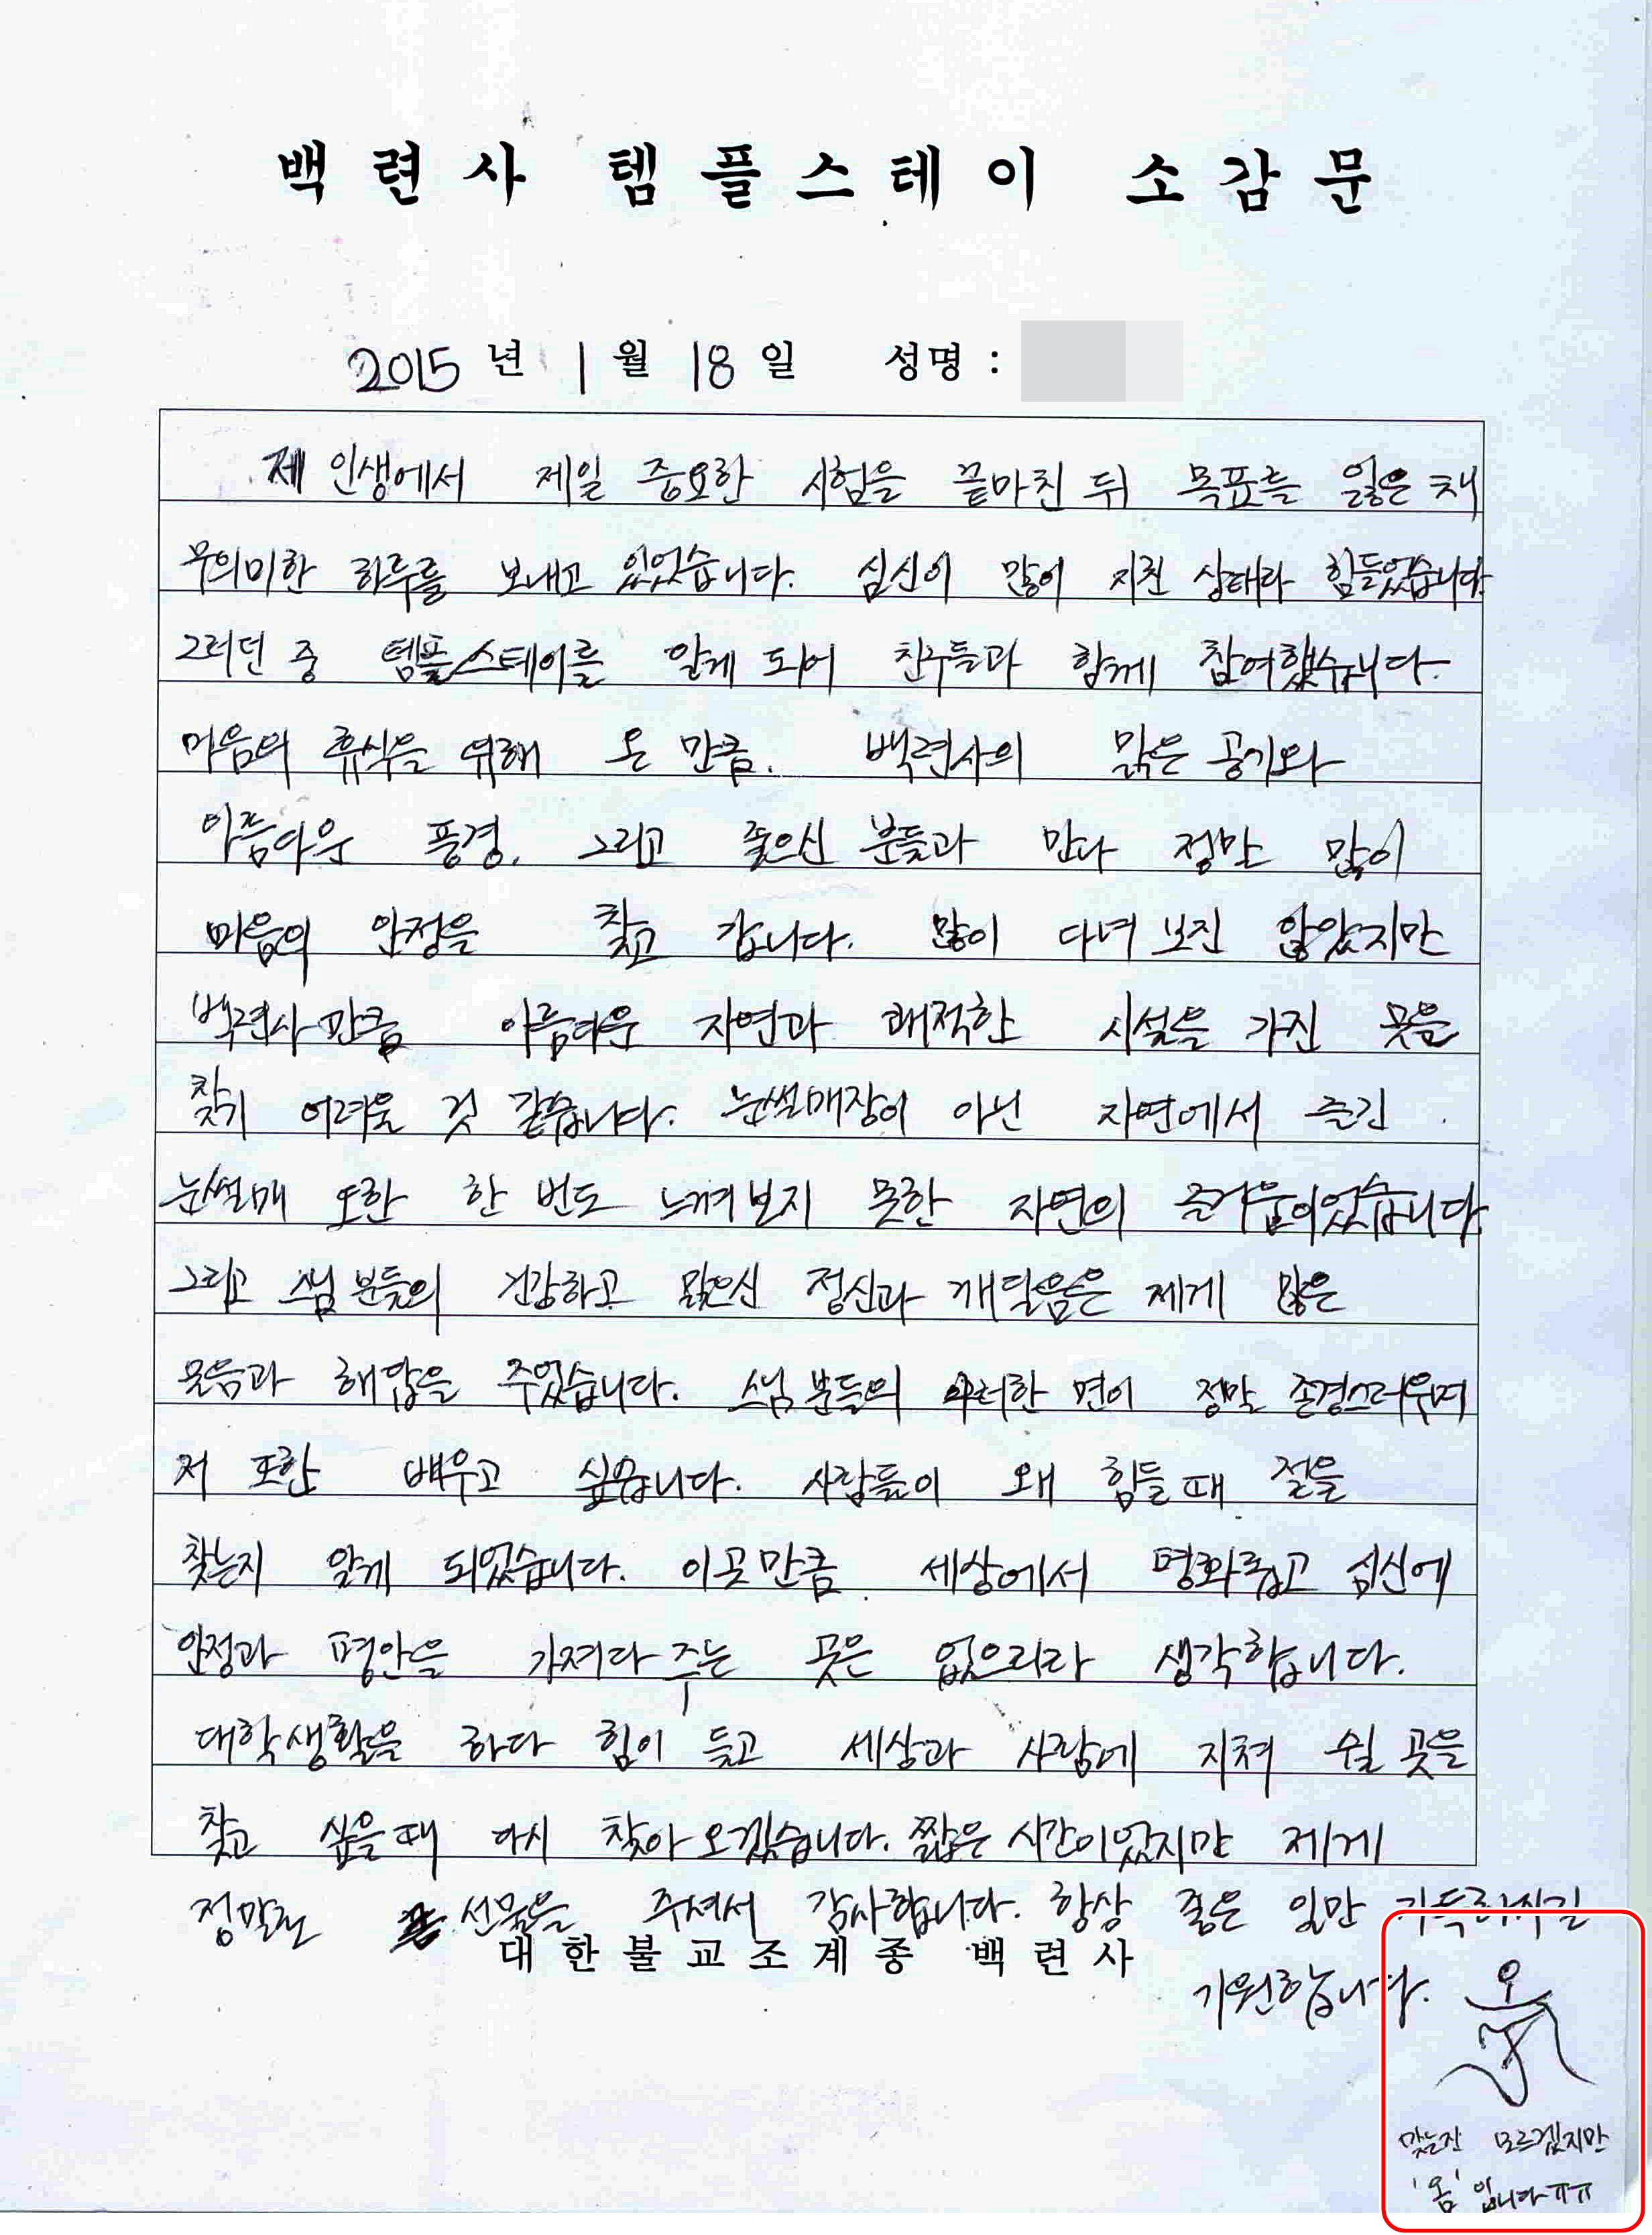 백련사 템플스테이 소감문
2015 년 1 월 18 일 성명 :
제 인생에서 제일 중요한 시험을 끝마친 뒤 목표를 잃은 채
무의미한 하루를 보내고 있었습니다. 심신이 많이 지친 상태라 힘들었습니다.
그러던 중 템플스테이를 알게 되어 친구들과 함께 참여했습니다.
마음의 휴식을 위해 온 만큼. 백련사의 맑은 공기와
아름다운 풍경, 그리고 좋으신 분들과 만나 정말 많이
마음의 안정을 찾고 갑니다. 많이 다녀 보진 않았지만
백련사만큼 아름다운 자연과 쾌적한 시설을 가진 곳을
찾기 어려울 것 같습니다. 눈썰매장이 아닌 자연에서 즐긴
눈썰매 또한 한 번도 느껴보지 못한 자연의 즐거움이었습니다
그리고 스님 분들의 건강하고 맑으신 정신과 깨달음은 제게 많은
물음과 해답을 주었습니다. 스님 분들의 이러한 면이 정말 존경스러우며
저 또한 배우고 싶습니다. 사람들이 왜 힘들 때 절을
찾는지 알게 되었습니다. 이곳만큼 세상에서 평화롭고 심신에
안정과 평안을 가져다 주는 곳은 없으리라 생각합니다.
대학생활을 하다 힘이 들고 세상과 사람에 지쳐 쉴 곳을
찾고 싶을 때 다시 찾아 오겠습니다. 짧은 시간이었지만 제게
정말로 큰 선물을 주셔서 감사합니다. 항상 좋은 일만 가득하시길
대한불교조계종 백련사
기원합니다.
맞는진 모르겠지만
'옴' 입니다ㅠㅠ